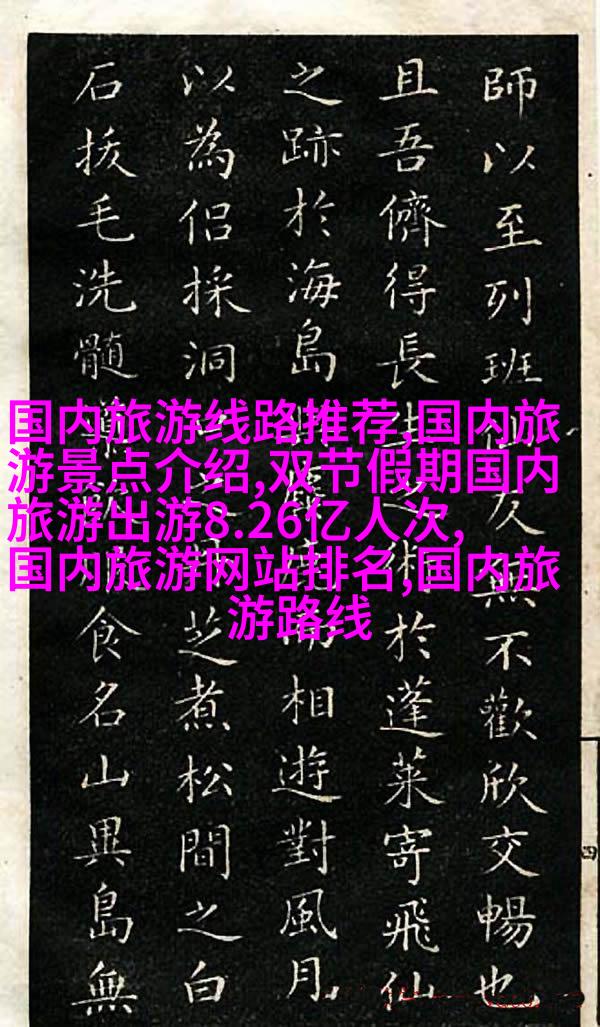 国内旅游线路推荐,国内旅
游景点介绍,双节假期国内
旅游出游8.26亿人次,
国内旅游网站排名,国内旅
游路线
師以至列班友無不歡欣交暢也
且吾儕得長生之術於蓬萊寄飛仙
之跡於海島而相遊對風月
以為侶採洞芝煮松間之白
石拔毛洗髓食名山異島無
四